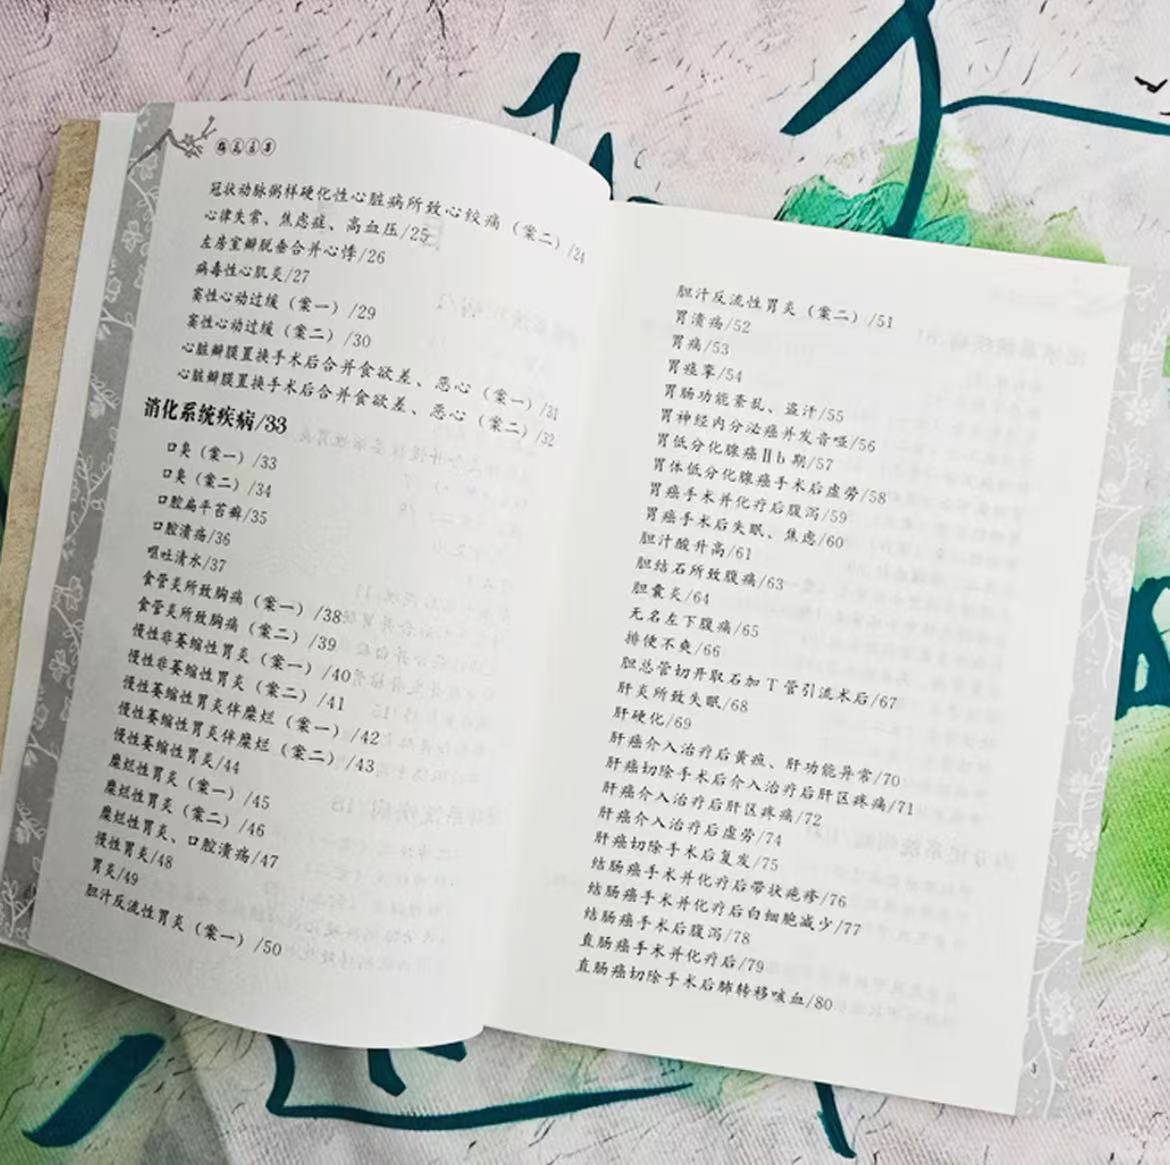 冠状动脉粥样硬化性心脏病所致心绞痛（案二）/24
心律失常、焦虑症、高血压/25
左房室瓣脱垂合并心悸/26
病毒性心肌炎/27
窦性心动过缓（案一）/29
窦性心动过缓（案二）/30
心脏瓣膜置换手术后合并食欲差、恶心（案一）/31
心脏瓣膜置换手术后合并食欲差、恶心（案二）/32
消化系统疾病/33
口臭（案一）/33
口臭（案二）/34
口腔扁平苔癣/35
口腔溃疡/36
呕吐清水/37
食管炎所致胸痛（案一）/38
食管炎所致胸痛（案二）/39
慢性非萎缩性胃炎（案一）/40
慢性非萎缩性胃炎（案二）/41
慢性萎缩性胃炎伴糜烂（案一）/42
慢性萎缩性胃炎伴糜烂（案二）/43
慢性萎缩性胃炎/44
糜烂性胃炎（案一）/45
糜烂性胃炎（案二）/46
糜烂性胃炎、口腔溃疡/47
慢性胃炎/48
胃炎/49
胆汁反流性胃炎（案一）/50
胆汁反流性胃炎（案二）/51
胃溃疡/52
胃痛/53
胃痉挛/54
胃肠功能紊乱、盗汗/55
胃神经内分泌癌并发音哑/56
胃低分化腺癌Ⅱb期/57
胃体低分化腺癌手术后虚劳/58
胃癌手术并化疗后腹泻/59
胃癌手术后失眠、焦虑/60
胆汁酸升高/61
胆结石所致腹痛/63
胆囊炎/64
无名左下腹痛/65
排便不爽/66
胆总管切开取石加T管引流术后/67
肝炎所致失眠/68
肝硬化/69
肝癌介入治疗后黄疸、肝功能异常/70
肝癌切除手术后介入治疗后肝区疼痛/71
肝癌介入治疗后肝区疼痛/72
肝癌介入治疗后虚劳/74
肝癌切除手术后复发/75
结肠癌手术并化疗后带状疱疹/76
结肠癌手术并化疗后白细胞减少/77
结肠癌手术后腹泻/78
直肠癌手术并化疗后/79
直肠癌切除手术后肺转移咳血/80
3